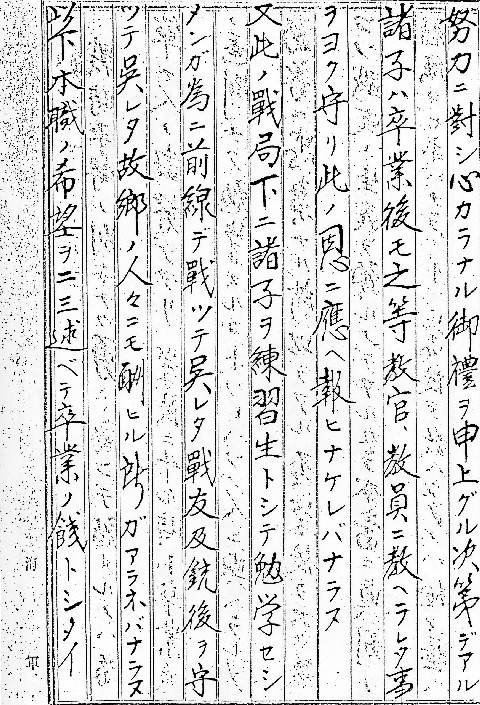 努力ニ對シ心カラナル御禮ヲ申上グル次第デアル
諸子ハ卒業後モ之等教官、教員ニ教ヘラレタ事
ヲヨク守リ此ノ恩ニ應ヘ報ヒナケレバナラヌ
又此ノ戰局下ニ諸子ヲ練習生トシテ勉学セシ
メンガ為ニ前線テ戰ツテ呉レタ戰友及銃後ヲ守
ツテ呉レタ故郷ノ人々ニモ酬ヒル所ガアラネバナラヌ
以下本職ノ希望ヲ二三述ベテ卒業ノ餞トシタイ
海軍